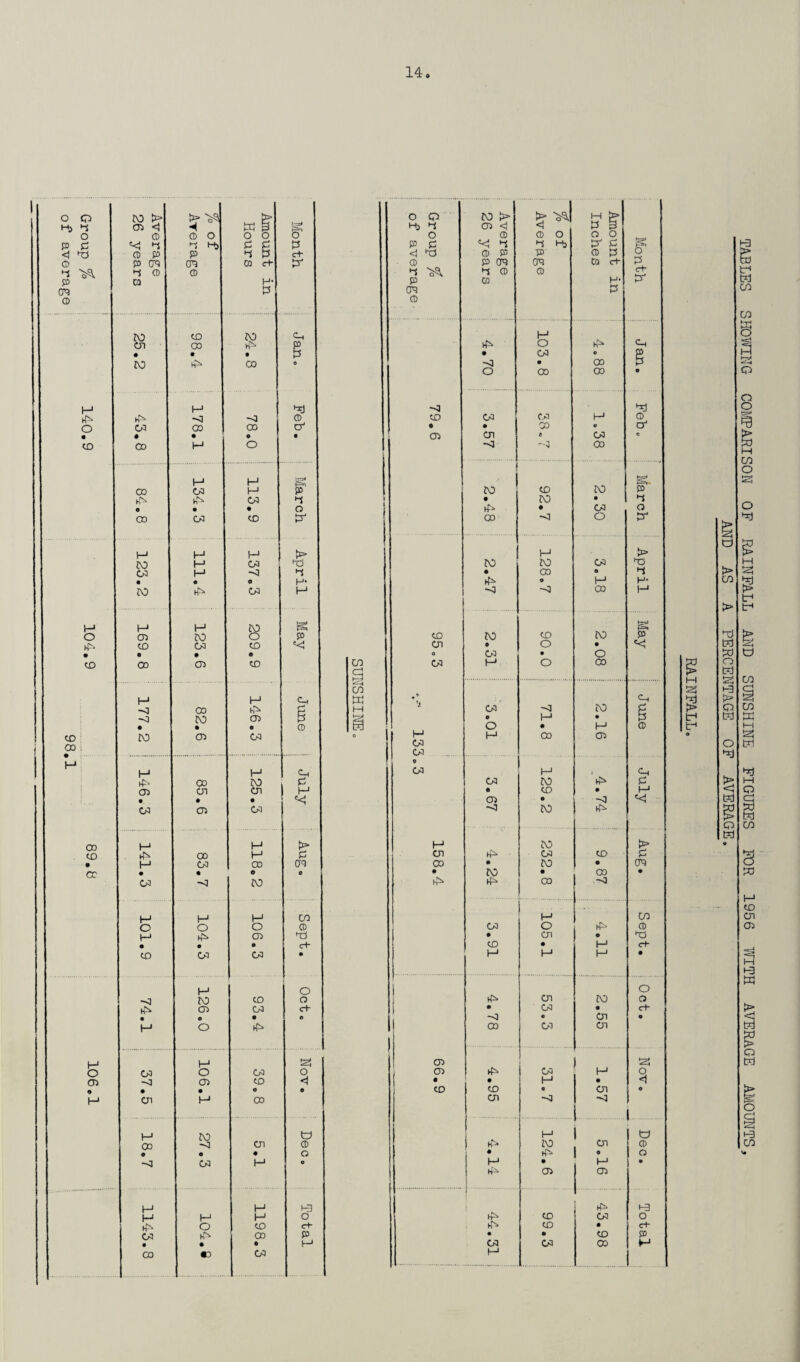 14.
TABLES SHOWING COMPARISON OF RAINFALL AND SUNSHINE FIGURES FOR 1956 WITH AVERAGE AMOUNTS,
AND AS A PERCENTAGE OF AVERAGE.
RAINFALL.
Month Jan. Feb. March April May June July Aug. Sept. Oct. Nov. Dec. Total
Amount in
Inches 4.88 1.38 2.30 3.18 2.08 2.16 4.74 9.87 4.11 2.55 1.57 5.16 43.98
% of
Average 103.8 38.7 92.7 128.7 90.0 71.8 129.2 232.8 105.1 53.3 31.7 124.6 99.3
Average
26 years 4.70 3.57 2.48 2.47 2.31 3.01 3.67 4.24 3.91 4.78 4.95 4.14 44.31
Group %
of average 79.6 95.3 133.3 158.4 66.9
SUNSHINE.
Month Jan. Feb. March April May June July Aug. Sept. Oct. Nov. Dec. Total
Amount in
Hours 24.8 78.0 113.9 137.3 209.9 146.3 125.3 118.2 106.3 93.4 39.8 5.1 1198.3
% of
Average 98.4 178.1 134.3 111.4 123.6 82.6 85.6 83.7 104.3 126.0 106.1 27.3
Average
26 years 25.2 43.8 84.8 123.2 169.8 177.2 146.3 141.3 101.9 74.1 37.5 18.7 1143.8
Group %
of average 140.9 104.9 98.1 89.8 106.1